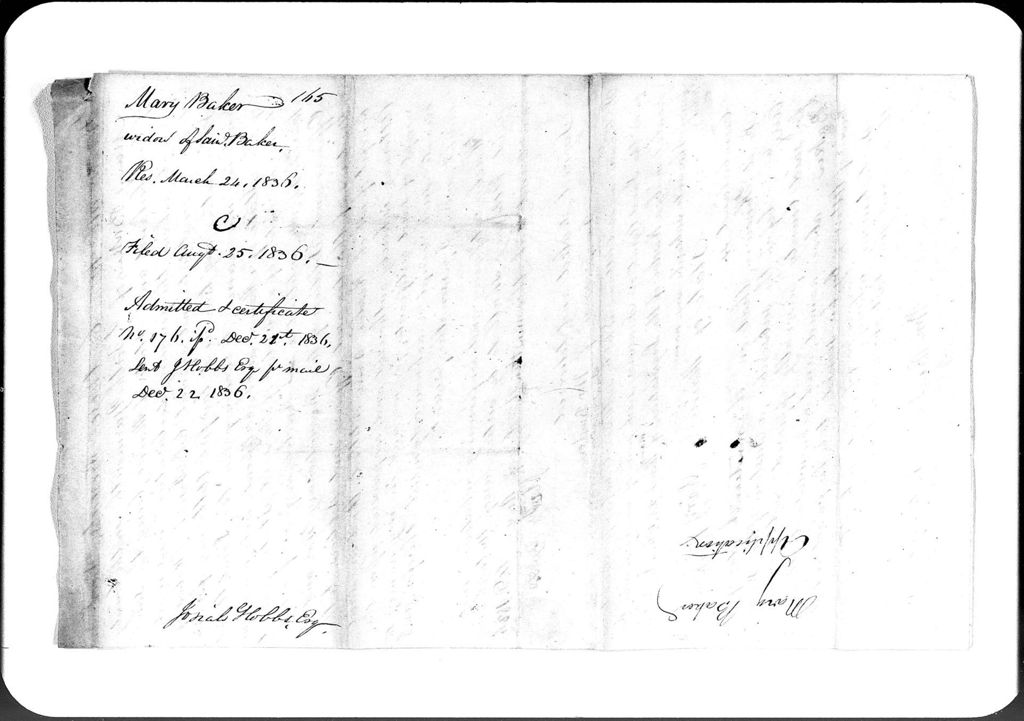 Mary Baker 165
widow of Sam.l Baker.
Res. March 24. 1836.
C
Filed Aug.t 25. 1836.
Admitted & certificate
No. 176. is.d Dec. 21st. 1836.
Sent J Hobbs Esq pr mail
Dec. 22 1836.
Josiah Hobbs, Esq.
Mary Baker
Application